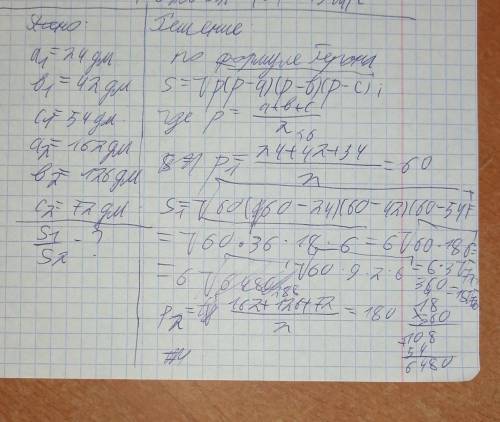 Дано:
a₁ = 24 дм
b₁ = 42 дм
c₁ = 54 дм
a₂ = 162 дм
b₂ = 126 дм
c₂ = 72 дм
S₁/S₂ - ?
Решение:
по формуле Герона
S = √p(p-a)(p-b)(p-c);
где p = (a+b+c)/2
p₁ = (24+42+54)/2 = 60
S₁ = √60(60-24)(60-42)(60-54)
= √60·36·18·6 = 6√60·18·6 =
= 6√6480 √60·9·2·6 = 6·3√
p₂ = (162+126+72)/2 = 180
18
360
108
54
6480